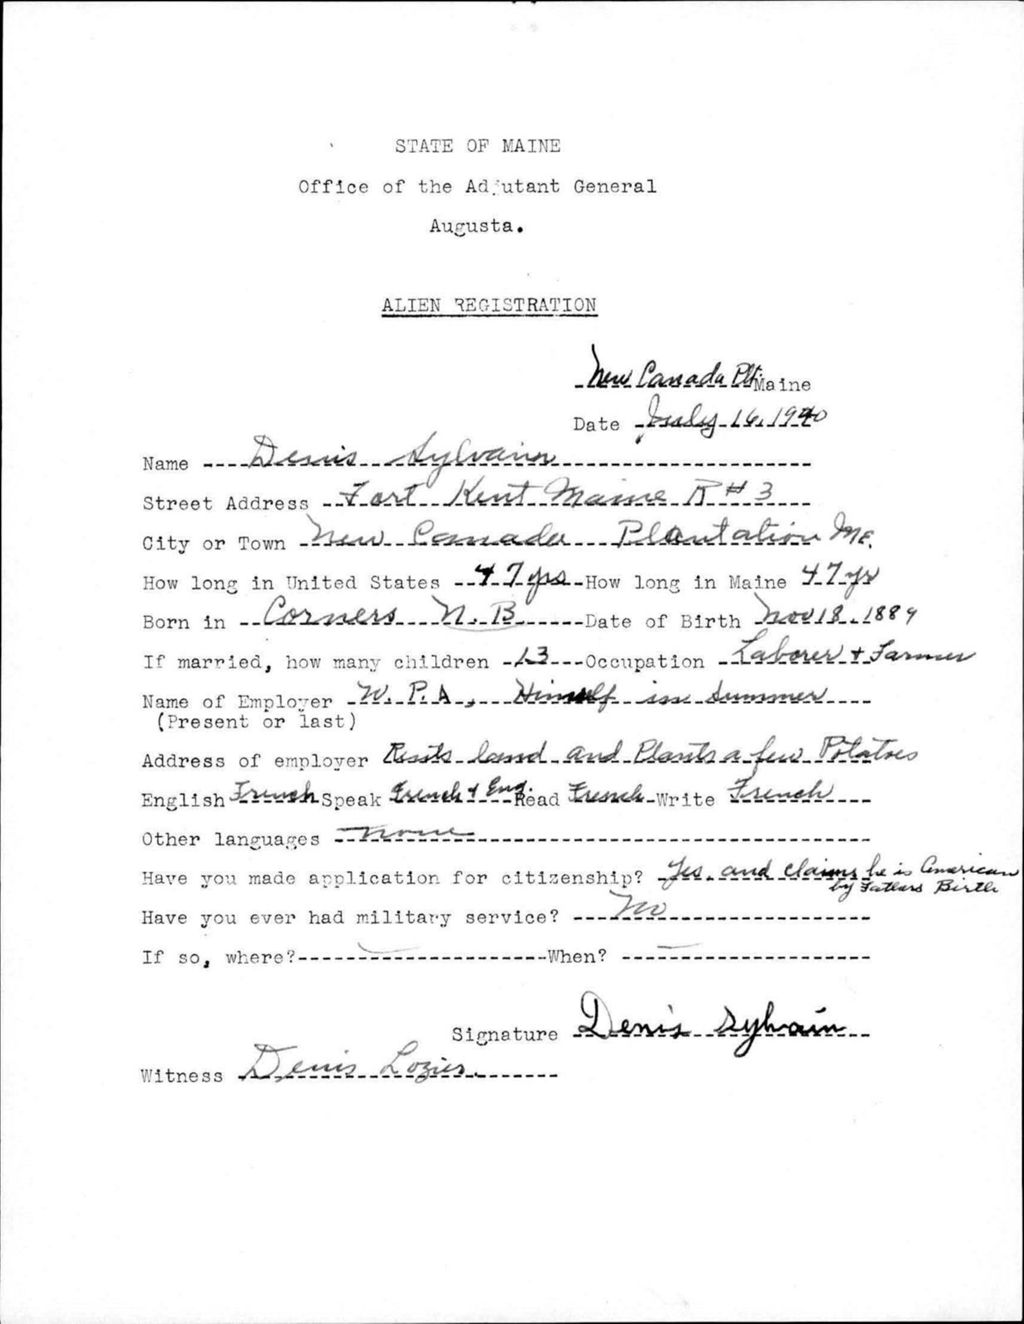 STATE OF MAINE
Office of the Adjutant General
Augusta.
ALIEN REGISTRATION
New Canada Plt. Maine
Date July 16, 1940
Name Denis Sylvain
Street Address Fort Kent Maine R # 3
City or Town New Canada Plantation Me.
How long in United States 47 yrs How long in Maine 47 yr
Born in Corners N. B. Date of Birth Nov 18, 1889
If married, how many children 13 Occupation Laborer + Farmer
Name of Employer W. P. A., Himself in Summer
(Present or last)
Address of employer Rents land and Plants a few Potatoes
English French Speak French & Eng. Read French Write French
Other languages None
Have you made application for citizenship? Yes. and claims he is American
by Fathers Birth
Have you ever had military service? No
If so, where? When?
Signature Denis Sylvain
Witness Denis Lozier.